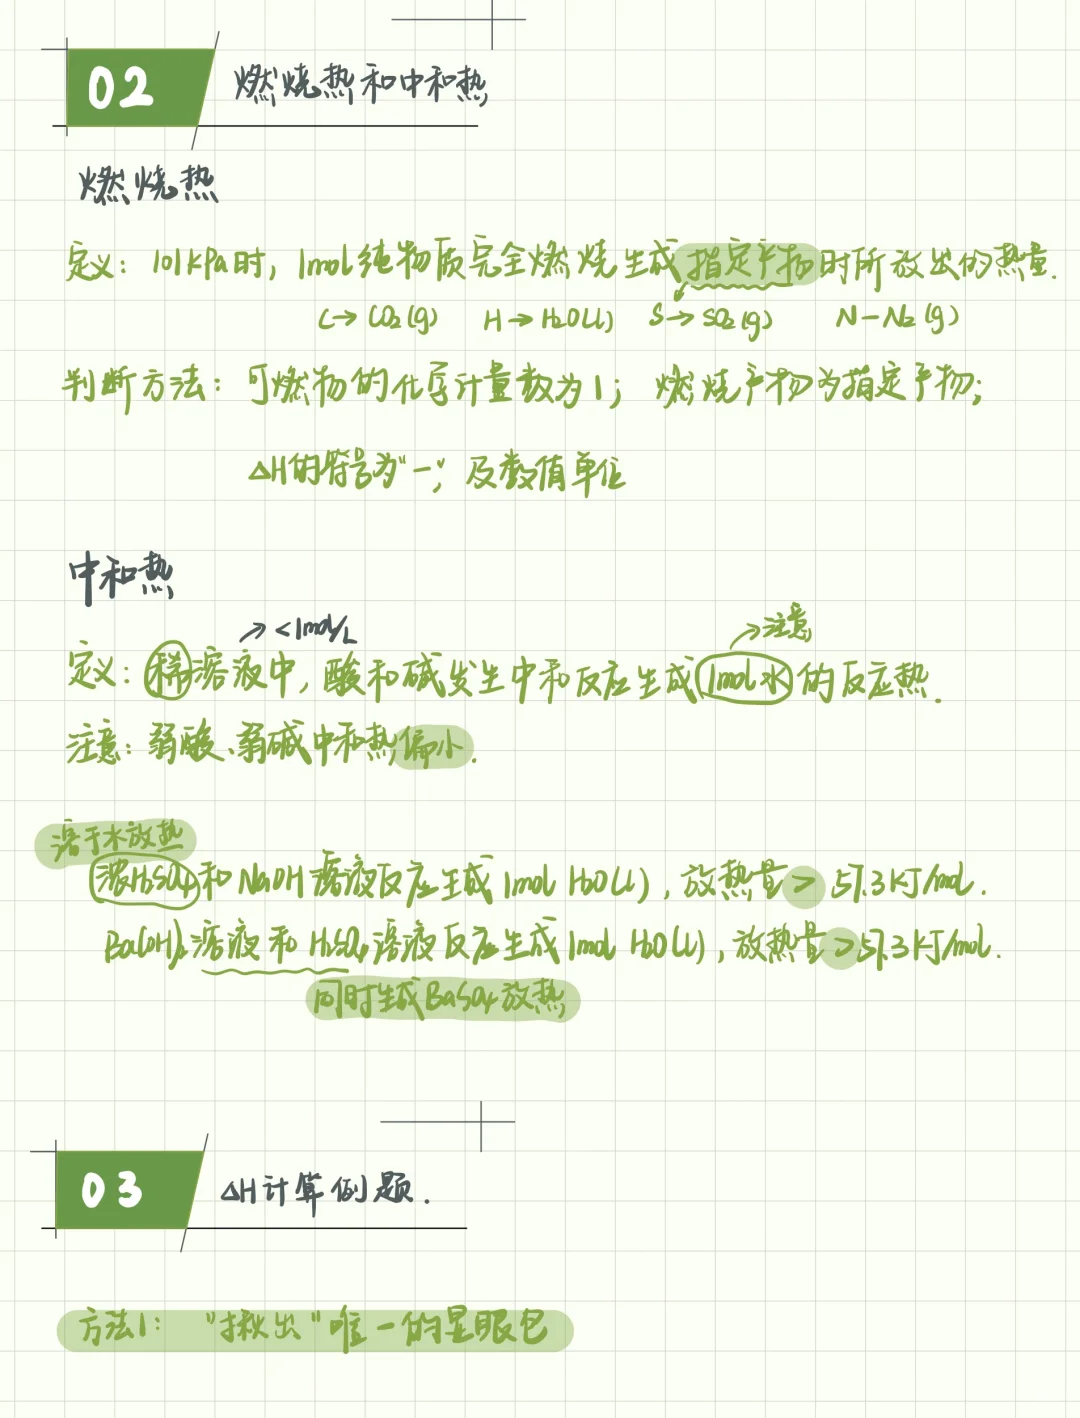 02 燃烧热和中和热
燃烧热
定义：101kPa时，1mol纯物质完全燃烧生成指定产物时所放出的热量.
C→CO₂(g) H→H₂O(l) S→SO₂(g) N—N₂(g)
判断方法：可燃物的化学计量数为1；燃烧产物为指定产物；
△H的符号为“－”；及数值单位
中和热
→<1mol/L
→注意
定义：稀溶液中，酸和碱发生中和反应生成1mol水的反应热.
注意：弱酸、弱碱中和热偏小.
溶于水放热
浓H₂SO₄和NaOH溶液反应生成1mol H₂O(l)，放热量>57.3KJ/mol.
Ba(OH)₂溶液和H₂SO₄溶液反应生成1mol H₂O(l)，放热量>57.3KJ/mol.
同时生成BaSO₄放热
03 △H计算例题.
方法1：“揪出”唯一的显眼包